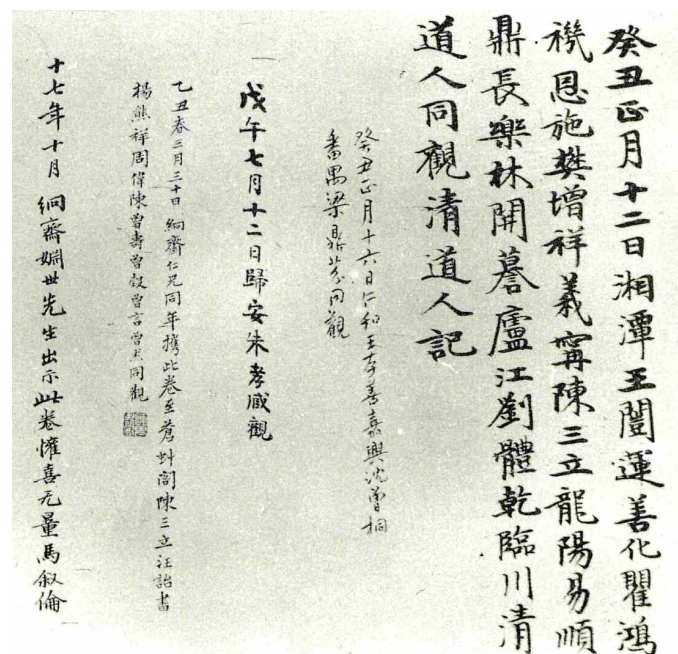 癸丑正月十二日湘潭王闓運善化瞿鴻
禨恩施樊增祥義寧陳三立龍陽易順
鼎長樂林開謩廬江劉體乾臨川清
道人同觀清道人記
癸丑正月十六日仁和王存善嘉興沈曾桐
番禺梁鼎芬同觀
戊午七月十二日歸安朱孝臧觀
乙丑春三月三十日絅齋仁兄同年携此卷至蒼虬閣陳三立汪詒書
楊熊祥周偉陳曾壽曾穀曾言曾同觀
十七年十月絅齋姻世先生出示此卷懽喜无量馬叙倫